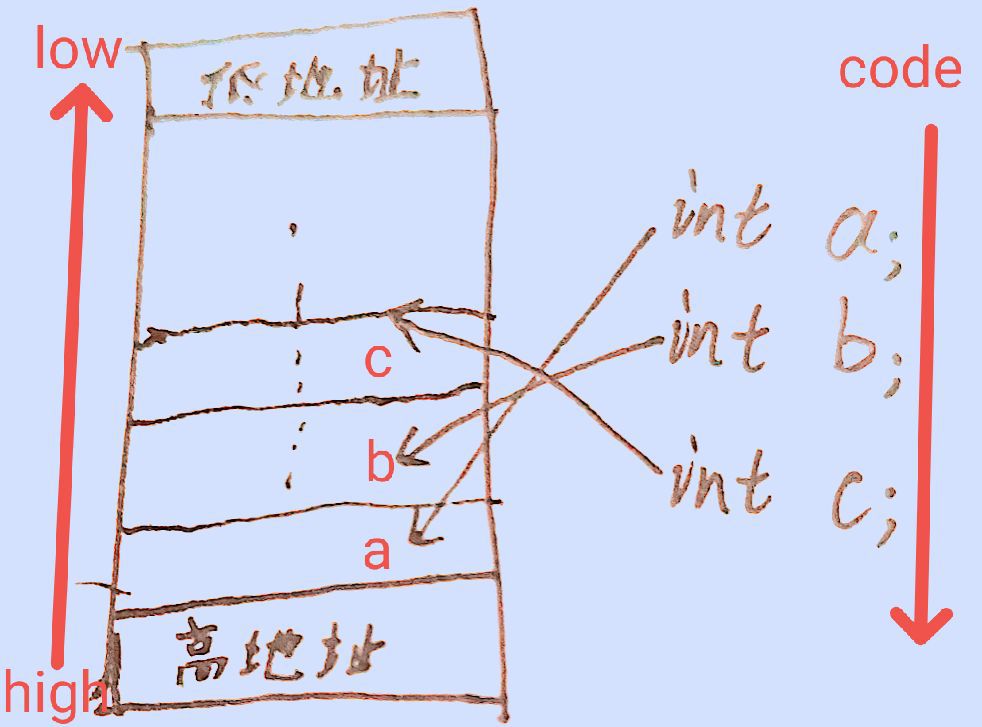 low
低地址
code
int a;
int b;
c
b
int c;
a
高地址
high